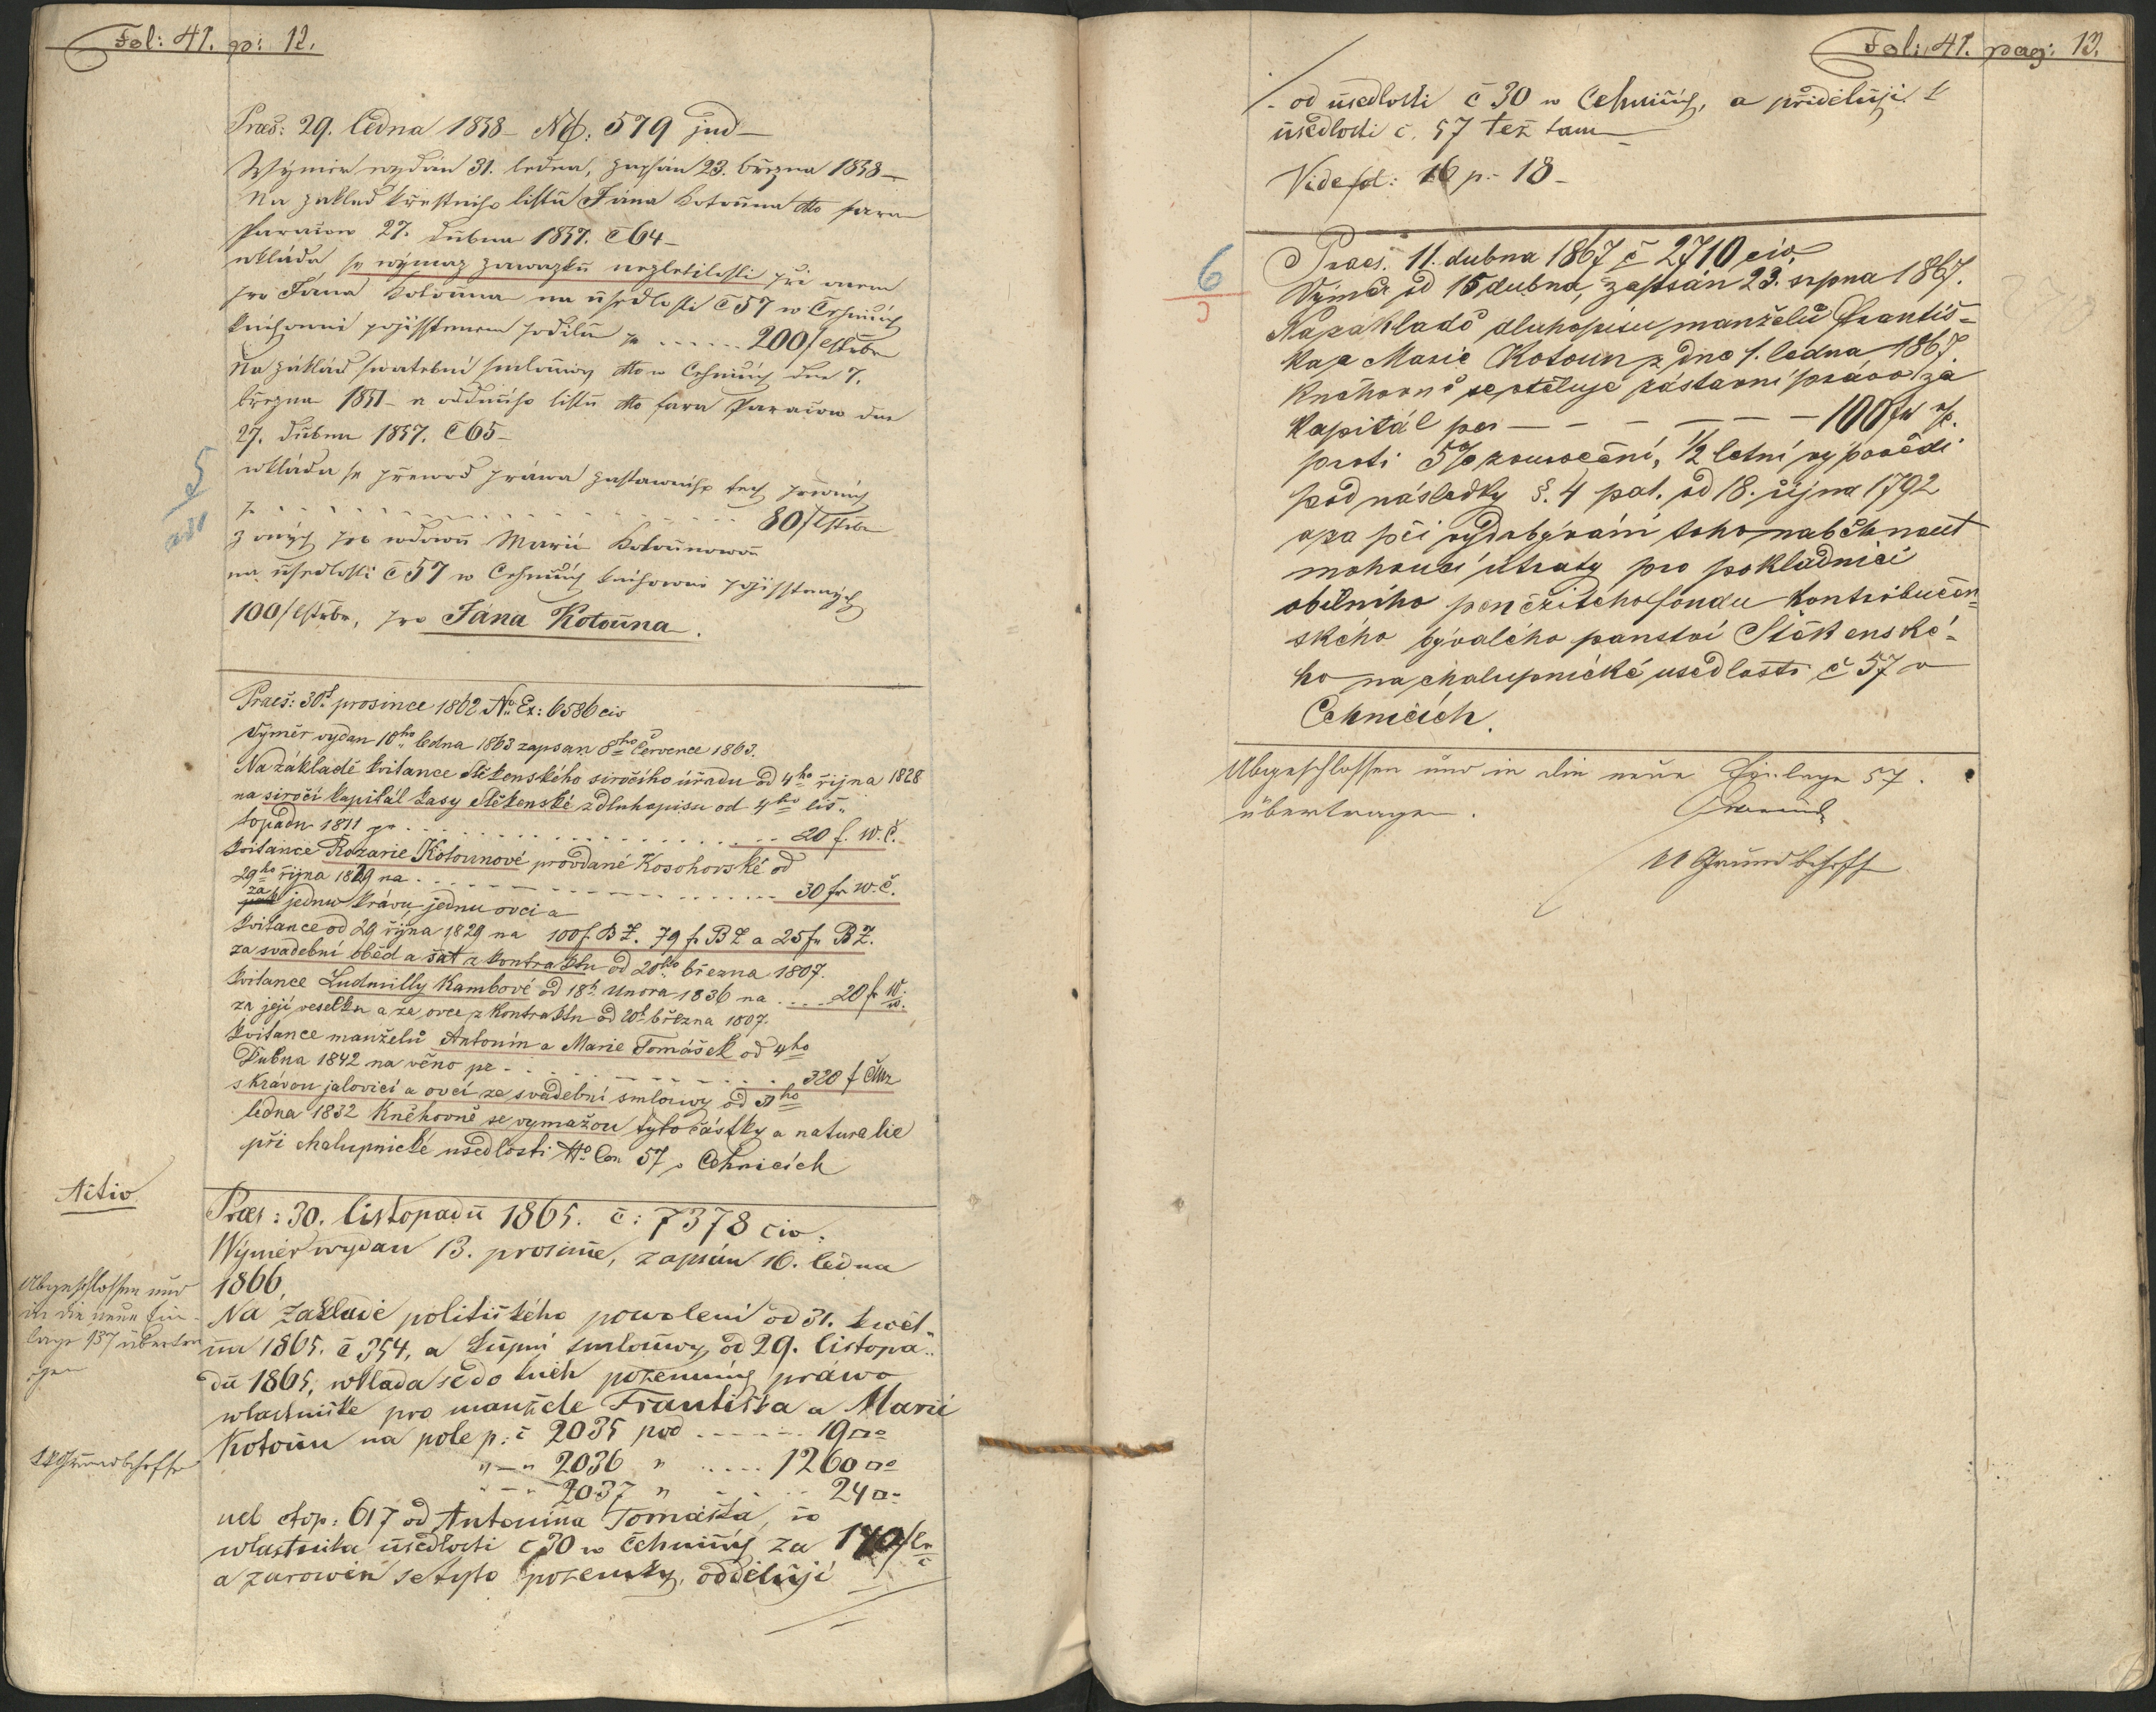 Fol: 41. p: 12.
Praes: 29. ledna 1858 – No. 579 jud –
Wýměr wydán 31. ledna, zapsán 23. března 1858 –
Na základ křestního listu Jána Kotouna dto fara
Paračow 27. dubna 1857. č 64 –
wkládá se wýmaz zawazku nezletilosti při onem
pro Jana Kotouna na usedlosti č 57 w Cehnicích
knihowně pojisstěnem podílu pr ...... 200 f
Na základ swatební smlouwy dto w Cehnicích dne 7.
března 1851 – a oddacího listu dto fara Paračow dne
27. dubna 1857. č 65 –
5
wkládá se přewod práwa zastawního těch prwních
pr ...... 80 f
z oných pro wdowu Marii Kotounowou
na usedlosti č 57 w Cehnicích knihowně pojisstěných
100 f, pro Jána Kotouna.
Praes: 30t prosince 1862 No. Ex: 6586 civ
Výměr vydan 10ho ledna 1863 zapsan 8ho Července 1863.
Na základě kvitance Štěkenského siročího úřadu od 4ho října 1828
na siročí kapitál kasy Štěkenské z dluhopisu od 4ho lis„
topadu 1811 pr ...... 20 f. W. Č.
kvitance Rozarie Kotounové provdané Kosohorské od
29ho října 1829 na ...... 30 fr W. Č.
za jednu krávu jednu ovci a
kvitance od 29 října 1829 na 100 f. B Z. 79 fr B Z a 25 fr B Z.
za svadební oběd a šat z kontraktu od 20ho března 1807.
kvitance Ludmilly Kambové od 18t. Unora 1836 na .... 20 fr W.
za její veselku a ze ovce z kontraktu od 20t března 1807.
kvitance manželů Antonín a Marie Tomášek od 4ho
Dubna 1842 na věno pr ...... 320 f ČMz
s krávou jalovicí a ovcí ze svadební smlouvy od 31ho
ledna 1832 Kněhovně se vymažou tyto částky a naturalie
při chalupnické usedlosti No Con 57 v Cehnicích
Activ
Praes: 30. listopadu 1865. č: 7378 civ:
Wýměr wydan 13. prosince, zapsán 16. ledna
1866,
Abgeschlossen und
in die neue Ein-
lage 137 übertra
gen
Na základě politického powolení od 31. kwět„
na 1865. č 354, a kupní smlouwy, od 29. listopa„
du 1865, wkláda se do knih pozemních práwo
wlastnické pro manžele Františka a Marii
Kotoun na pole p: č 2035 pod ...... 19 □°
" – " 2036 " ..... 1260 □°
" – " 2037 " ... 24 □°
KKGrundbchsffr
nel top: 617 od Antonina Tomáška, co
wlastníka usedlosti č 30 w Cehnicích za 140 f
a zaroweň se tyto pozemky, oddělují
Fol: 41. pag: 13.
od usedlosti č 30 w Cehnicích, a přidělují k
usedlosti č. 57 též tam –
Vide fol: 16 p: 18 –
6
Praes. 11. dubna 1867 č 2710 civ.
Výměr od 15 dubna, zapsán 23. srpna 1867.
Na základě dluhopisu manželů Františ-
ka a Marie Kotoun z dne 1. ledna 1867.
Kněhovně se vtěluje zástavní právo za
Kapitál per – – – – – – 100 fr
proti 5% zouročení, ½ letní výpovědi
pod následky §. 4 pat. od 18. října 1792
a za při vydobývání toho naběhnout
mohoucí útraty pro pokladnici
obilního peněžitého fondu kontribučen-
ského bývalého panství Štěkenské-
ho na chalupnické usedlosti č 57 v
Cehnicích.
Abgeschlossen und in die neue Einlage 57.
übertragen.
KGrundbchsff